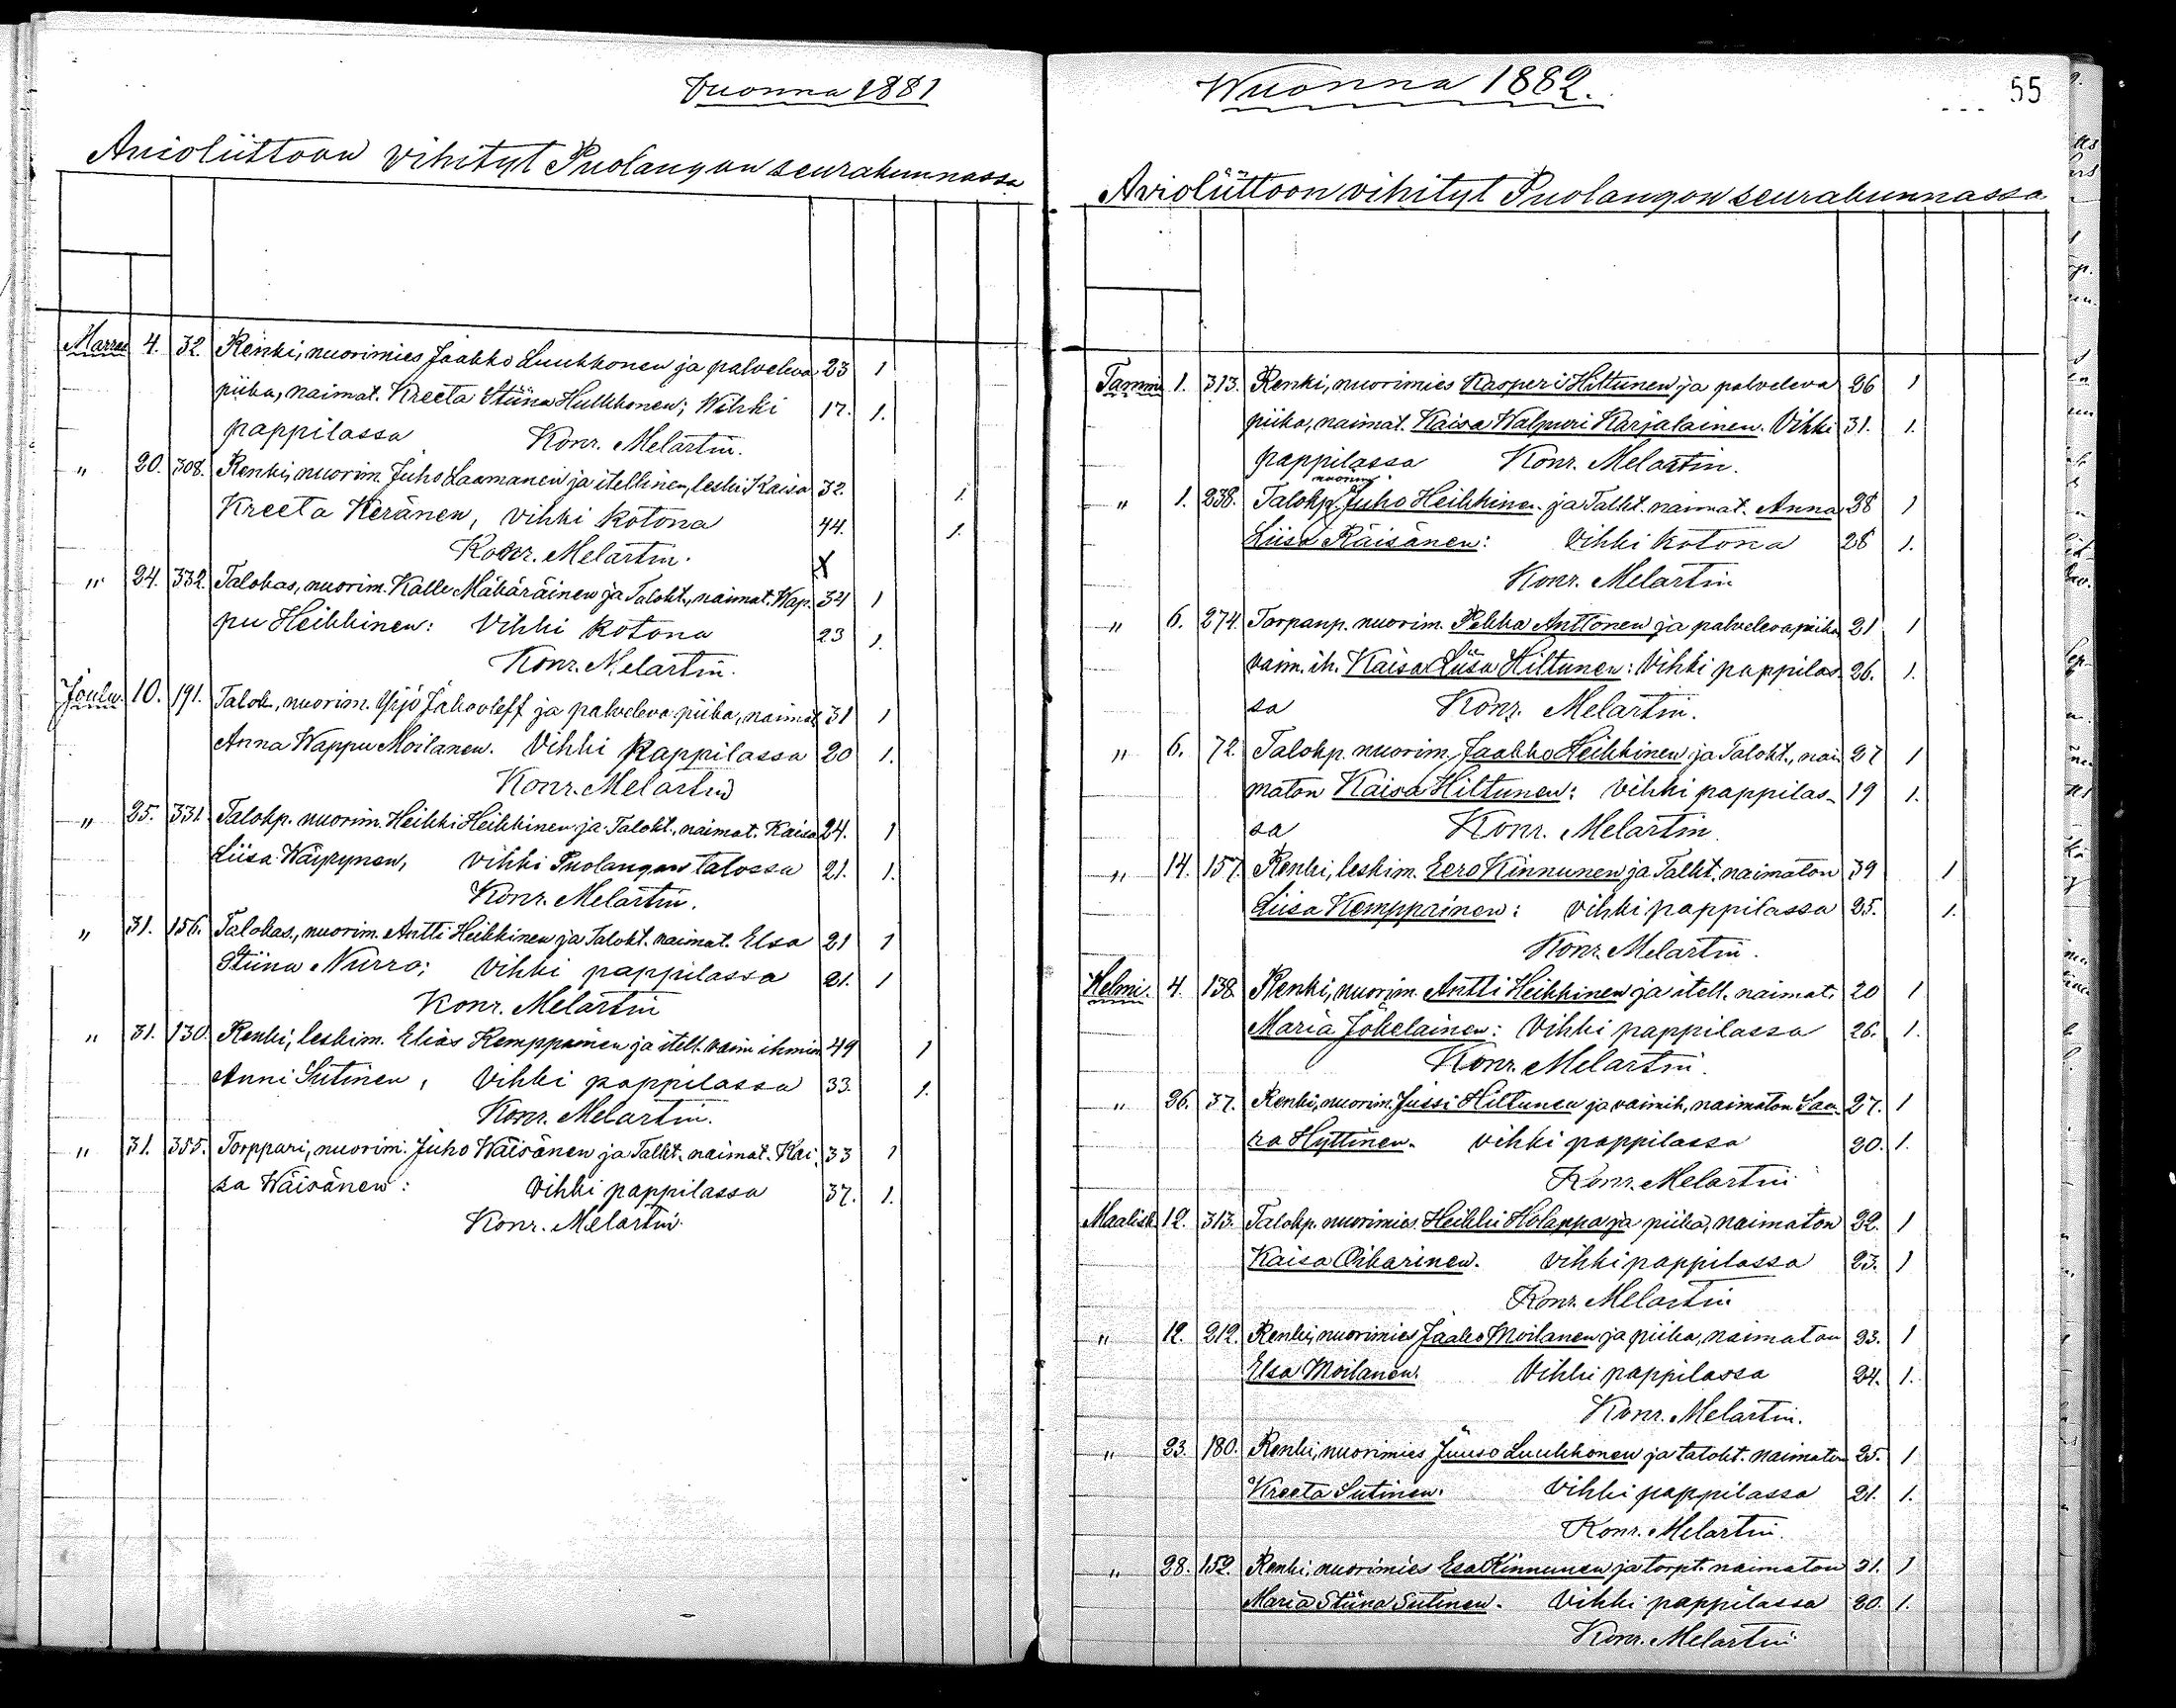 Vuonna 1881
Avioliittoon vihityt Puolangan seurakunnassa
Marras 4. 32. Renki, nuorimies Jaakko Luukkonen ja palveleva 23 1
piika, naimat. Kreeta Stiina Hulkkonen; Wihki 17. 1.
pappilassa Konr. Melartin.
" 20. 308. Renki, nuorim. Juho Laamanen ja itellinen, leski Kaisa 32. 1.
Kreeta Keränen, vihki kotona 44. 1.
Konr. Melartin. X
" 24. 332. Talokas, nuorim. Kalle Mäkäräinen ja Talokt., naimat. Wap- 34 1
pu Heikkinen: Vihki kotona 23 1.
Konr. Melartin.
Joulu. 10. 191. Talok., nuorim. Yrjö Jakovleff ja palveleva piika, naimat 31 1
Anna Wappu Moilanen. Vihki Pappilassa 20 1.
Konr. Melartin
" 25. 331. Talokp. nuorim. Heikki Heikkinen ja Talokt., naimat. Kaisa 24. 1
Liisa Wäyrynen, vihki Puolangan talossa 21. 1.
Konr. Melartin.
" 31. 156. Talokas., nuorim. Antti Heikkinen ja Talokt. naimat. Elsa 21 1
Stiina Nurro; Vihki pappilassa 21. 1
Konr. Melartin
" 31. 130. Renki, leskim. Elias Kemppainen ja itell. vaim ihmin 49 1
Anni Sutinen, Vihki pappilassa 33. 1.
Konr. Melartin.
" 31. 355. Torppari, nuorim. Juho Wäisänen ja Talkt. naimat. Kai- 33 1
sa Wäisänen: Vihki pappilassa 37. 1.
Konr. Melartin.
Wuonna 1882.
55
Avioliittoon vihityt Puolangon seurakunnassa
Tammi 1. 313. Renki, nuorimies Kasperi Hiltunen ja palveleva 26 1
piika, naimat. Kaisa Walpuri Karjalainen. Vihki 31. 1.
pappilassa Konr. Melartin.
" 1. 238. Talokp. Juho Heikkinen ja Talkt. naimat. Anna 28 1
Liisa Räisänen: Vihki kotona 28 1.
Konr. Melartin
" 6. 274 Torpanp. nuorim. Pekka Anttonen ja palveleva piika 21 1
vaim. ih. Kaisa Liisa Hiltunen: Vihki pappilas- 26. 1.
sa Konr. Melartin.
" 6. 72. Talokp. nuorim. Jaakko Heikkinen ja Talokt., nai- 27 1
maton Kaisa Hiltunen: Vihki pappilas- 19 1.
sa Konr. Melartin.
" 14. 157. Renki, leskim. Eero Kinnunen ja Talkt. naimaton 39 1
Liisa Kemppainen: Vihki pappilassa 25. 1.
Konr. Melartin.
Helmi. 4. 138. Renki, nuorim. Antti Heikkinen ja itell. naimat. 20 1
Maria Jokelainen: Vihki pappilassa 26. 1.
Konr. Melartin.
" 26. 37. Renki, nuorim. Jussi Hiltunen ja vaimih. naimaton Saa- 27. 1
ra Hyttinen. vihki pappilassa 20. 1.
Konr. Melartin
Maalisk. 12. 313. Talokp. nuorimies Heikki Holappa ja piika, naimaton 22. 1
Kaisa Oikarinen. vihki pappilassa 23. 1
Konr. Melartin
" 12. 212. Renki, nuorimies Jaako Moilanen ja piika, naimaton 23. 1
Elsa Moilanen. Vihki pappilassa 24. 1.
Konr. Melartin.
" 23. 180. Renki, nuorimies Juuso Luukkonen ja talokt. naimaton 25. 1
Kreeta Sutinen. Vihki pappilassa 21. 1.
Konr. Melartin.
" 28. 152. Renki, nuorimies Esa Kinnunen ja torpt. naimaton 21. 1
Maria Stiina Sutinen. Vihki pappilassa 20. 1.
Konr. Melartin